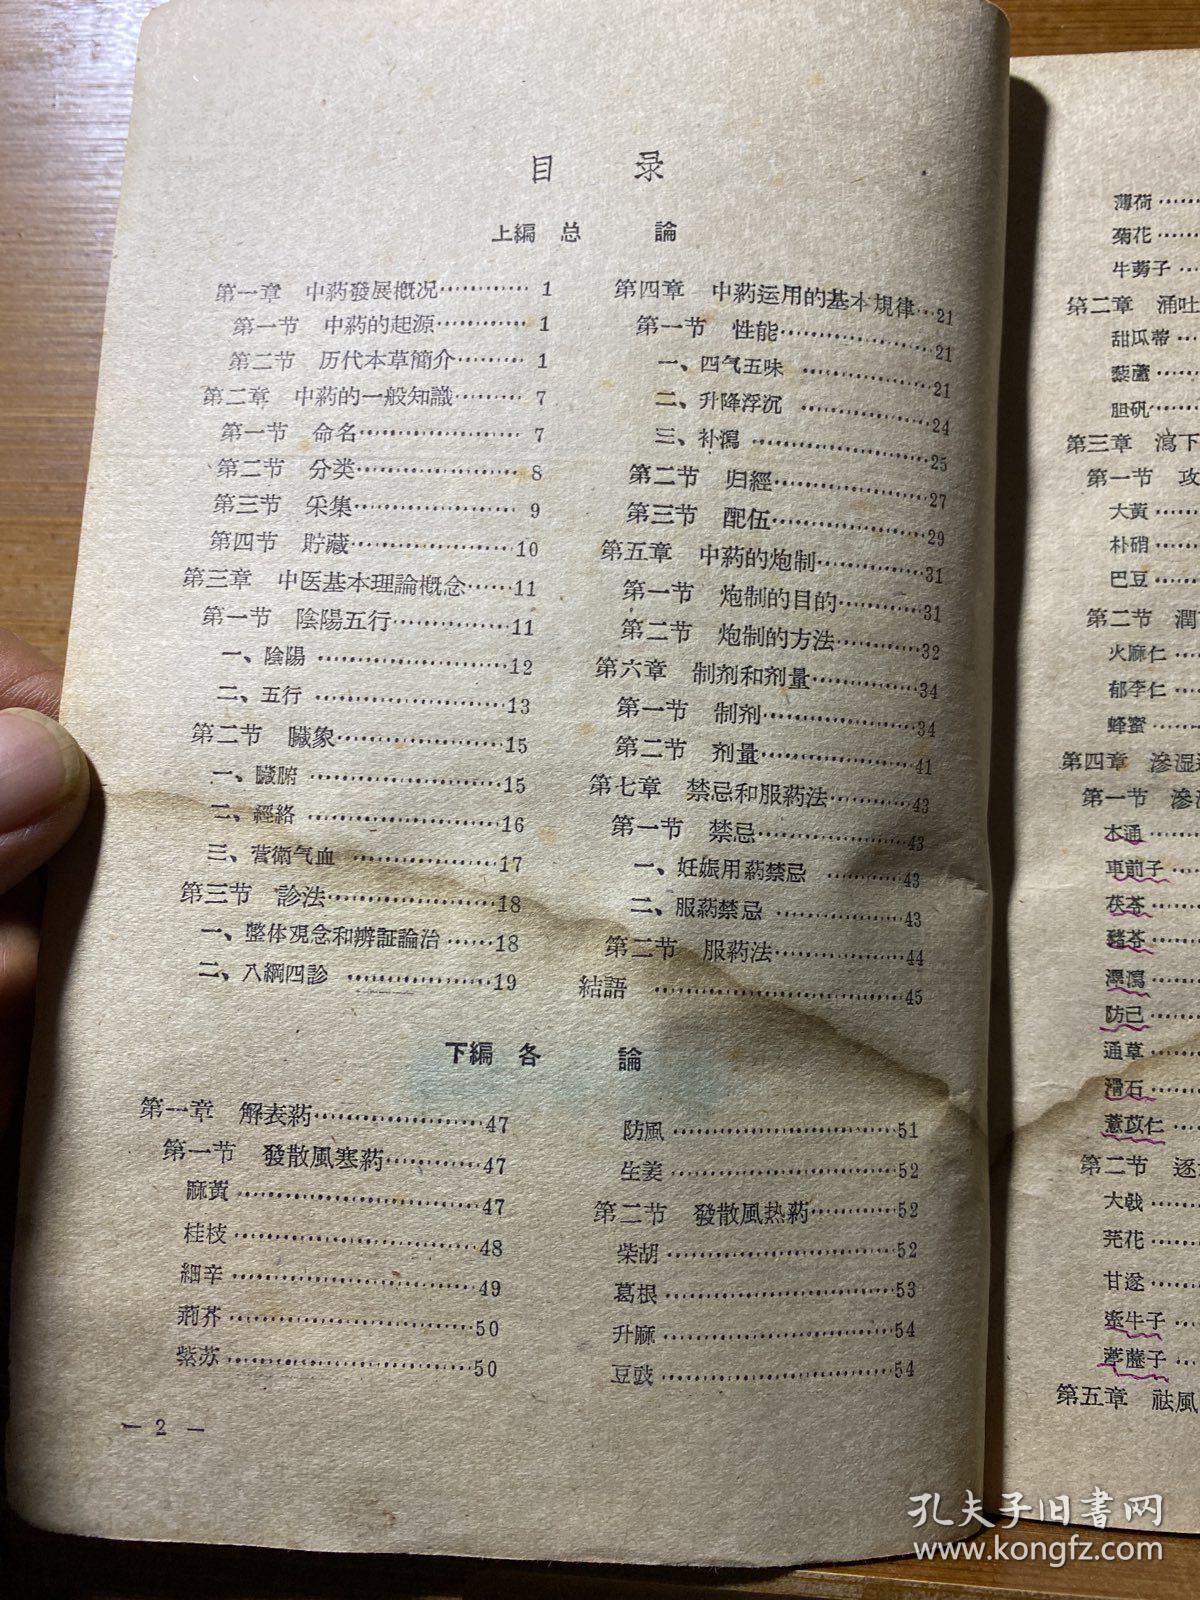 目 录
上編 总 論
第一章 中葯發展概况………… 1
第一节 中葯的起源………… 1
第二节 历代本草簡介………… 1
第二章 中葯的一般知識……… 7
第一节 命名………………… 7
第二节 分类………………… 8
第三节 采集………………… 9
第四节 貯藏…………………10
第三章 中医基本理論概念……11
第一节 陰陽五行……………11
一、陰陽 ……………………12
二、五行 ……………………13
第二节 臟象…………………15
一、臟腑 ……………………15
二、經絡 ……………………16
三、营衛气血 ………………17
第三节 診法…………………18
一、整体观念和辨証論治 ……18
二、八綱四診 ………………19
第四章 中葯运用的基本規律…21
第一节 性能…………………21
一、四气五味 ………………21
二、升降浮沉 ………………24
三、补瀉 ……………………25
第二节 归經…………………27
第三节 配伍…………………29
第五章 中葯的炮制……………31
第一节 炮制的目的…………31
第二节 炮制的方法…………32
第六章 制剂和剂量……………34
第一节 制剂…………………34
第二节 剂量…………………41
第七章 禁忌和服葯法…………43
第一节 禁忌…………………43
一、妊娠用葯禁忌 …………43
二、服葯禁忌 ………………43
第二节 服葯法………………44
結語 …………………………45
下編 各 論
第一章 解表葯…………………47
第一节 發散風寒葯…………47
麻黃…………………………47
桂枝…………………………48
細辛…………………………49
荊芥…………………………50
紫苏…………………………50
防風…………………………51
生姜…………………………52
第二节 發散風热葯…………52
柴胡…………………………52
葛根…………………………53
升麻…………………………54
豆豉…………………………54
— 2 —
薄荷……
菊花……
牛蒡子…
第二章 涌吐
甜瓜蒂…
藜蘆……
胆矾……
第三章 瀉下
第一节 攻
大黃……
朴硝……
巴豆……
第二节 潤
火麻仁…
郁李仁…
蜂蜜……
第四章 滲湿
第一节 滲
木通……
車前子…
茯苓……
豬苓……
澤瀉……
防己……
通草……
滑石……
薏苡仁…
第二节 逐
大戟……
芫花……
甘遂……
牽牛子…
葶藶子…
第五章 祛風
孔夫子旧书网
www.kongfz.com